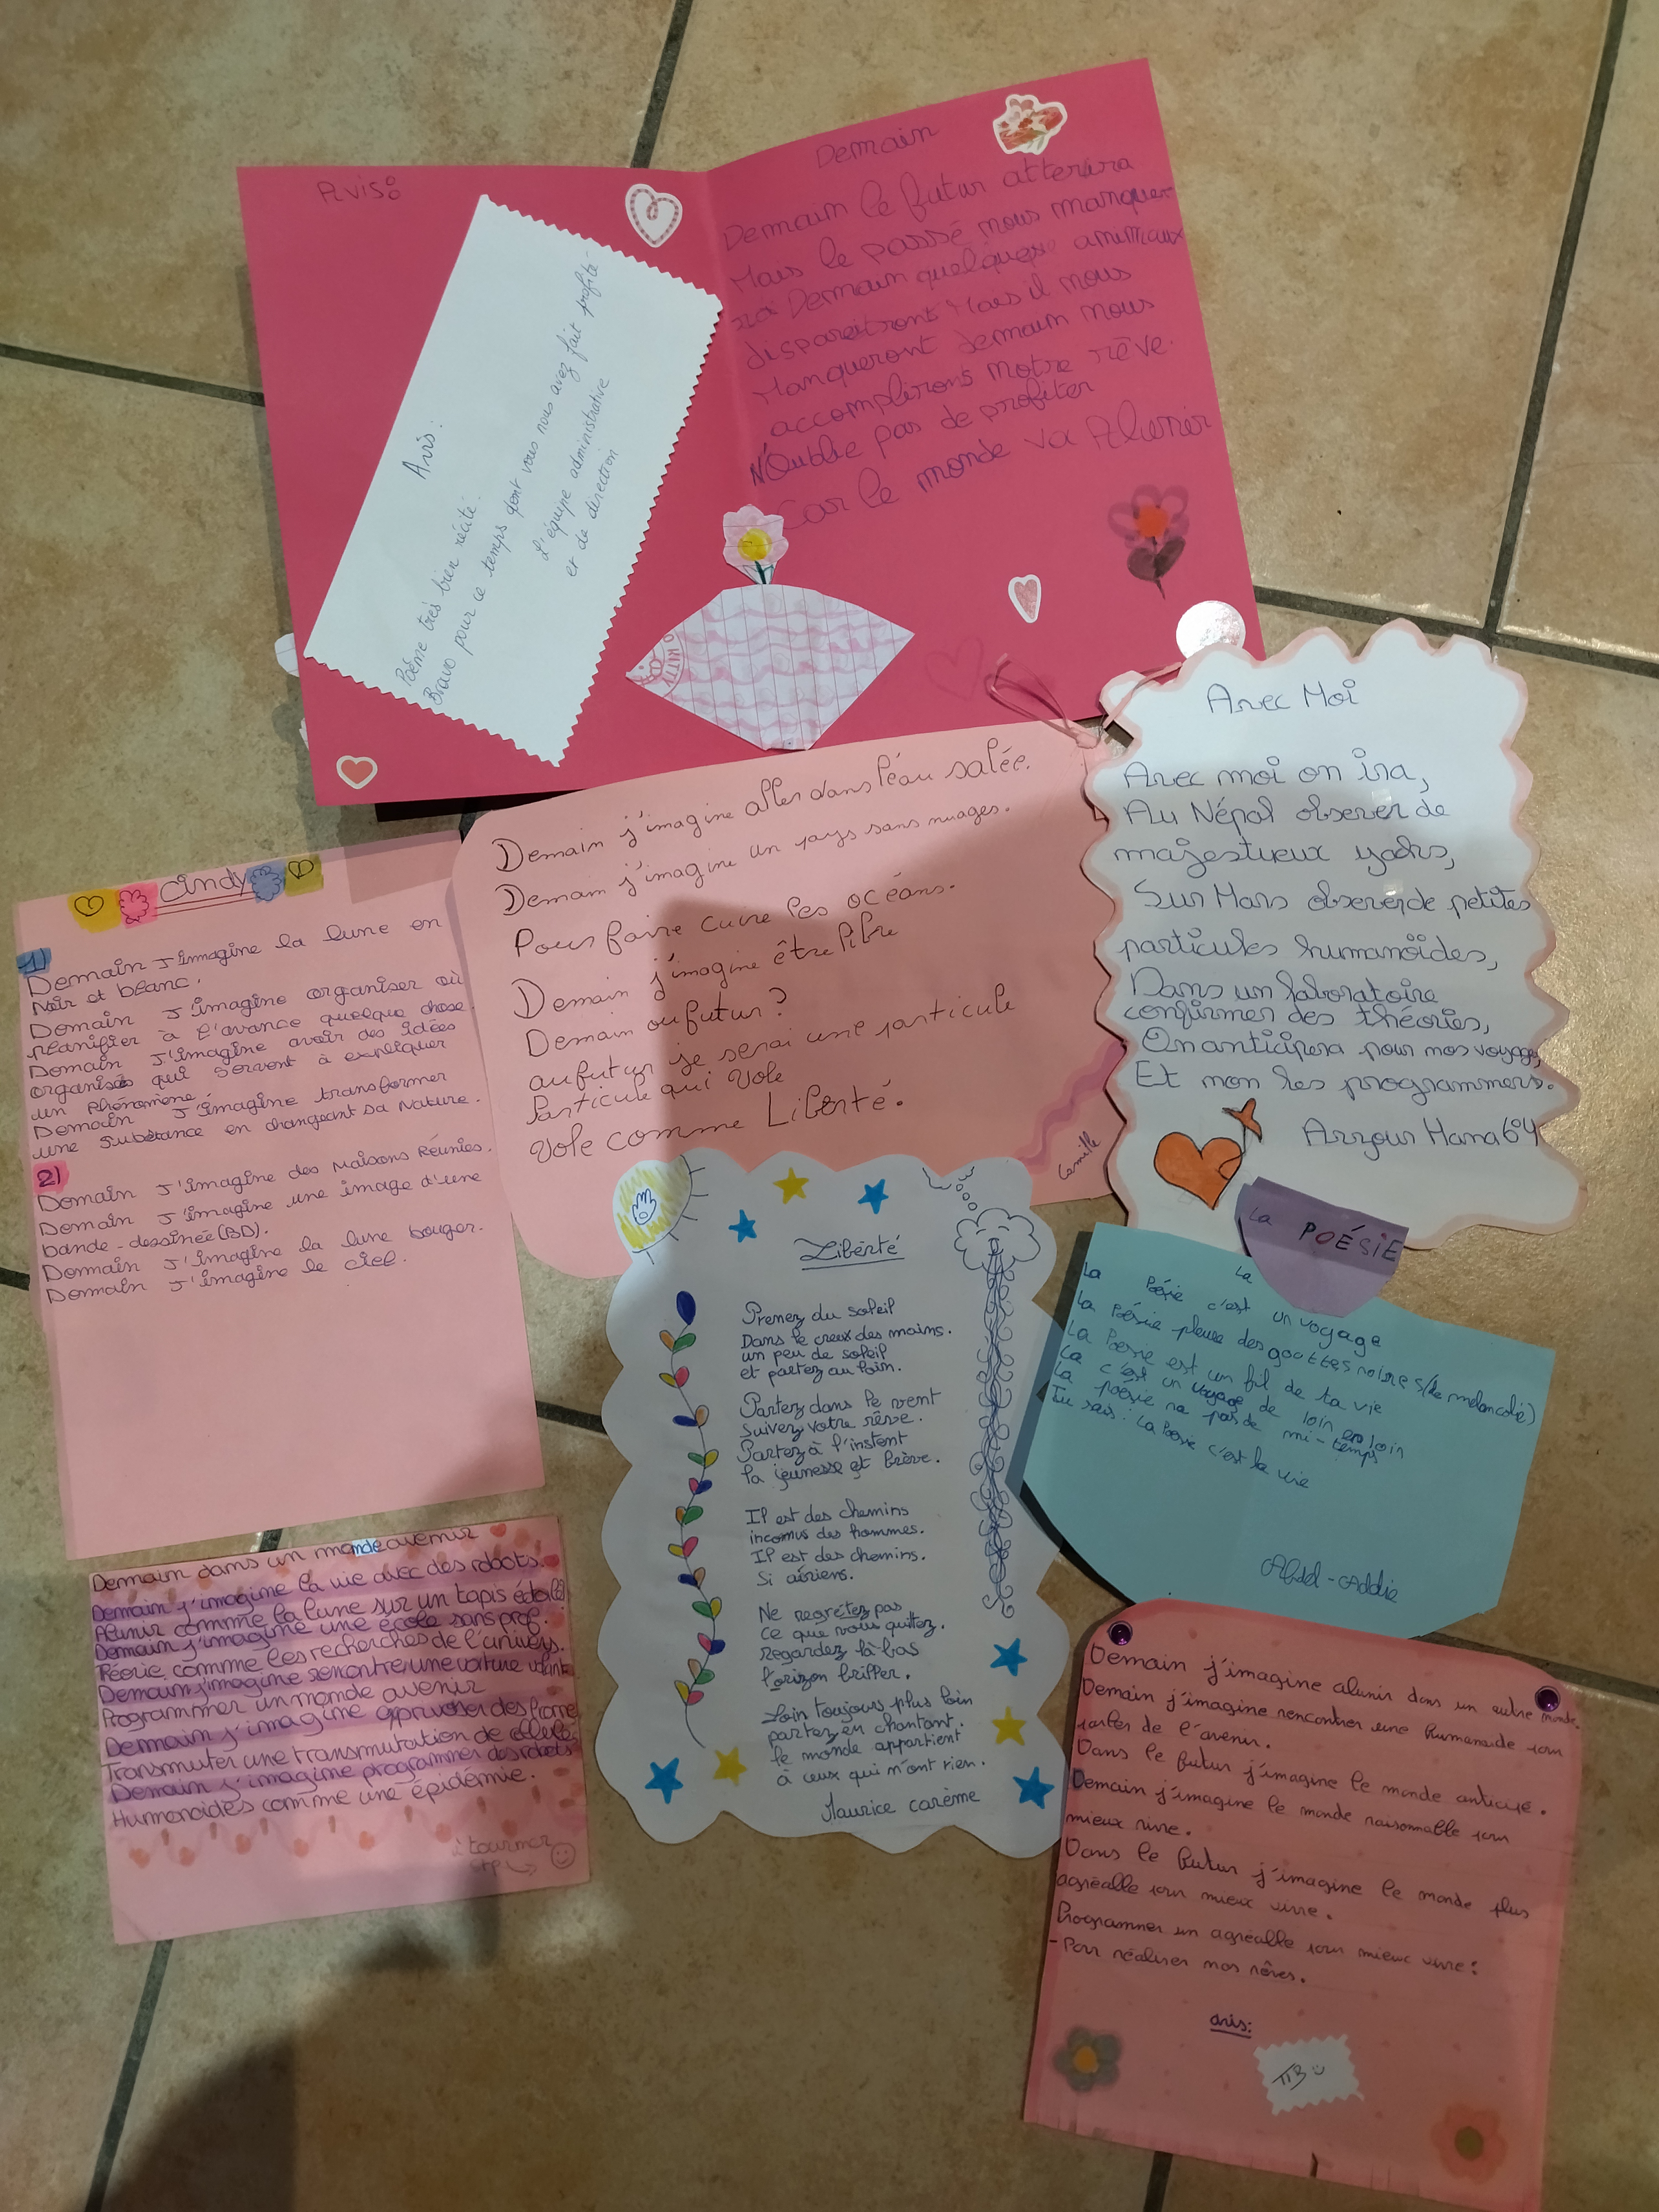 Avis:
Avis:
Poème très bien récité.
Bravo pour ce temps dont vous nous avez fait profité
L'équipe administrative
et de direction
KITTY
Demain
Demain le futur atterira
Mais le passé nous manque
ra Demain quelques animaux
disparaitront Mais il nous
Manqueront demain nous
accomplirons notre rêve.
N'oublie pas de profiter
Car le monde va Alunir
Avec Moi
Avec moi on ira,
Au Népal observer de
majestueux yacks,
Sur Mars observer de petites
particules humanoïdes,
Dans un laboratoire
confirmer des théories,
On anticipera pour nos voyages,
Et non les programmers.
Arzour Hana 64
Demain j'imagine aller dans l'éau salée.
Demain j'imagine un pays sans nuages.
Pour faire cuire les océans.
Demain j'imagine être libre
Demain ou futur?
au futur je serai une particule
Particule qui Vole
Vole comme Liberté.
Camille
Cindy
1)
Demain J'imagine la lune en
Noir et blanc.
Demain J'imagine organiser où
planifier à l'avance quelque chose.
Demain J'imagine avoir des idées
organisés qui servent à expliquer
un phénomène.
Demain J'imagine transformer
une substance en changeant sa Nature.
2)
Demain J'imagine des Maisons Réunies.
Demain J'imagine une image d'une
bande-dessinée (BD).
Demain J'imagine la lune bouger.
Demain J'imagine le ciel.
Liberté
Prenez du soleil
Dans le creux des mains.
un peu de soleil
et partez au loin.
Partez dans le vent
suivez votre rêve.
Partez à l'instent
la jeunesse et brève.
Il est des chemins
inconus des hommes.
Il est des chemins.
Si aériens.
Ne regrétez pas
ce que vous quittez.
regardez là-bas
l'orizon briller.
Loin toujours plus loin
partez en chantant.
le monde appartient
à ceux qui n'ont rien.
Maurice carème
La POÉSIE
La La
Poésie c'est un voyage
La Poésie pleure des gouttes noires (de melancolie)
La Poesie est un fil de ta vie
La c'est un voyage de loin en loin
La poésie na pas de mi-temps
Tu sais: La Poesie c'est la vie
Abdel-
Demain dans un monde avenir
Demain j'imagine la vie avec des robots.
Alunir comme la lune sur un tapis étoilé
Demain j'imagine une école sans prof.
Téorie comme les recherches de l'univers.
Demain j'imagine rencontre une voiture volant
Programmer un monde avenir
Demain j'imagine des
Transmuter une transmutation de
Demain j'imagine programmer des robots
Humonoides comme une épidémie.
à tourner
svp
Demain j'imagine alunir dans un autre monde.
Demain j'imagine rencontrer une humanoide pour
parler de l'avenir.
Dans le futur j'imagine le monde anticipé.
Demain j'imagine le monde raisonnable pour
mieux vivre.
Dans le futur j'imagine le monde plus
agréable pour mieux vivre.
Programmer un agréable pour mieux vivre:
-Pour réaliser mos rêves.
avis:
TB